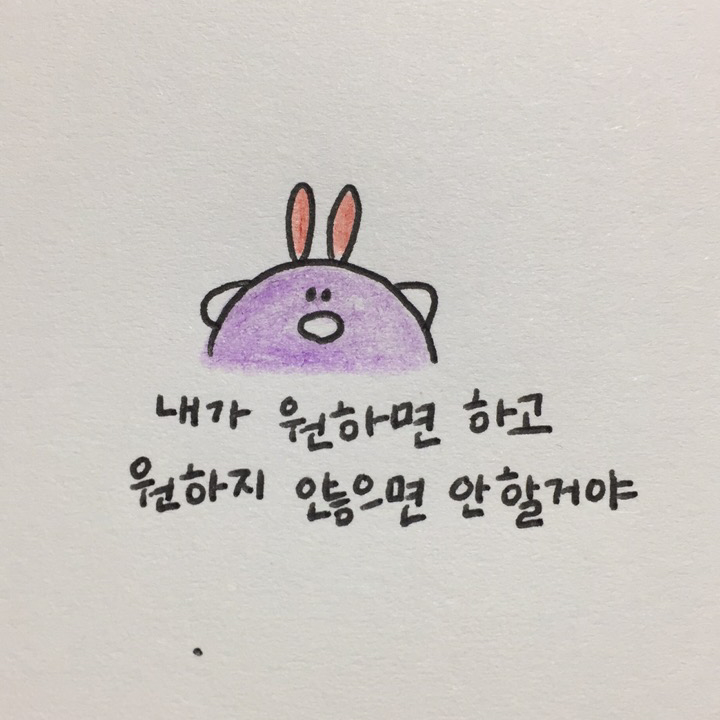 내가 원하면 하고
원하지 않으면 안할거야